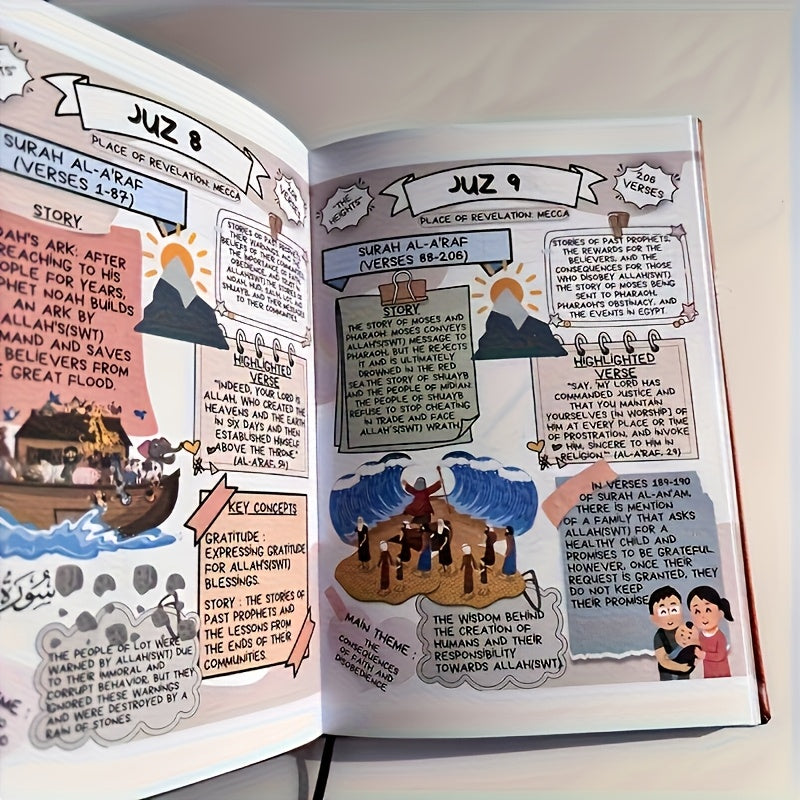 JUZ 8
PLACE OF REVELATION: MECCA
SURAH AL-A'RAF
(VERSES 1-87)
STORY
ARK: AFTER
REACHING TO HIS
FOR YEARS,
NOAH BUILDS
AN ARK BY
ALLAH'S(SWT)
AND SAVES
BELIEVERS FROM
GREAT FLOOD.
STORIES OF PAST
TO THEIR COMMUNITIES.
HIGHLIGHTED
VERSE
"INDEED, YOUR LORD IS
ALLAH, WHO CREATED THE
HEAVENS AND THE EARTH
IN SIX DAYS AND THEN
ESTABLISHED HIMSELF
ABOVE THE THRONE."
(AL-A'RAF, 54)
KEY CONCEPTS
GRATITUDE :
EXPRESSING GRATITUDE
FOR ALLAH'S(SWT)
BLESSINGS.
STORY : THE STORIES OF
PAST PROPHETS AND
THE LESSONS FROM
THE ENDS OF THEIR
COMMUNITIES.
THE PEOPLE OF LOT WERE
WARNED BY ALLAH(SWT) DUE
TO THEIR IMMORAL AND
CORRUPT BEHAVIOR, BUT THEY
IGNORED THESE WARNINGS
AND WERE DESTROYED BY A
RAIN OF STONES.
"THE
HEIGHTS"
JUZ 9
206
VERSES
PLACE OF REVELATION: MECCA
SURAH AL-A'RAF
(VERSES 88-206)
STORY
THE STORY OF MOSES AND
PHARAOH. MOSES CONVEYS
ALLAH'S(SWT) MESSAGE TO
PHARAOH, BUT HE REJECTS
IT AND IS ULTIMATELY
DROWNED IN THE RED
SEA.THE STORY OF SHUAYB
AND THE PEOPLE OF MIDIAN:
THE PEOPLE OF SHUAYB
REFUSE TO STOP CHEATING
IN TRADE AND FACE
ALLAH'S(SWT) WRATH.
STORIES OF PAST PROPHETS,
THE REWARDS FOR THE
BELIEVERS, AND THE
CONSEQUENCES FOR THOSE
WHO DISOBEY ALLAH(SWT).
THE STORY OF MOSES BEING
SENT TO PHARAOH,
PHARAOH'S OBSTINACY, AND
THE EVENTS IN EGYPT.
HIGHLIGHTED
VERSE
"SAY, 'MY LORD HAS
COMMANDED JUSTICE AND
THAT YOU MAINTAIN
YOURSELVES [IN WORSHIP] OF
HIM AT EVERY PLACE OR TIME
OF PROSTRATION, AND INVOKE
HIM, SINCERE TO HIM IN
RELIGION.'" (AL-A'RAF, 29)
IN VERSES 189-190
OF SURAH AL-AN'AM,
THERE IS MENTION
OF A FAMILY THAT ASKS
ALLAH(SWT) FOR A
HEALTHY CHILD AND
PROMISES TO BE GRATEFUL.
HOWEVER, ONCE THEIR
REQUEST IS GRANTED, THEY
DO NOT KEEP
THEIR PROMISE.
MAIN THEME :
THE
CONSEQUENCES
OF FAITH AND
DISOBEDIENCE
THE WISDOM BEHIND
THE CREATION OF
HUMANS AND THEIR
RESPONSIBILITY
TOWARDS ALLAH(SWT)